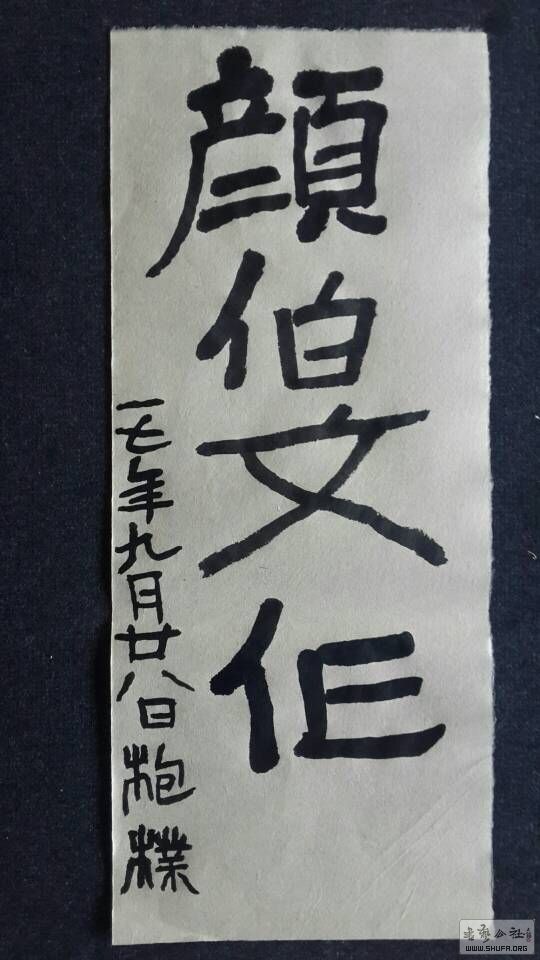 顏伯文作
一七年九月廿八日抱樸
WWW.SHUFA.ORG